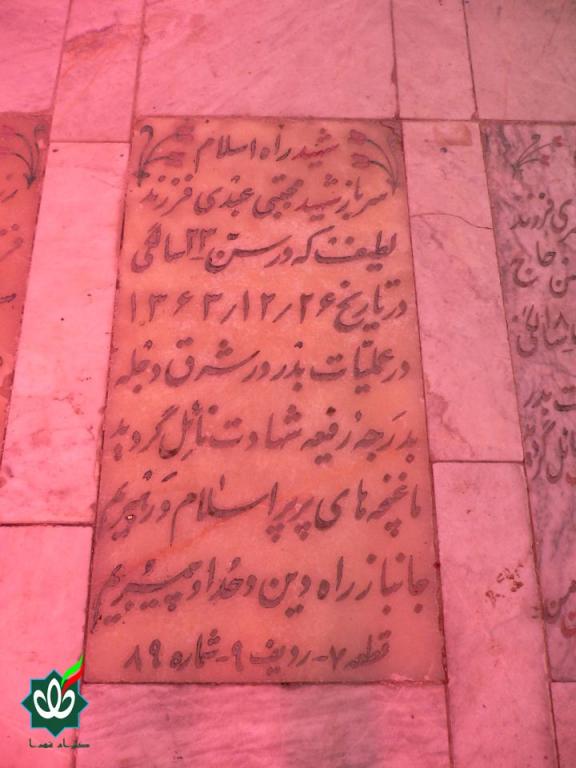 شهید راه اسلام
سرباز شهید مجتبی عبدی فرزند
لطیف که در سن ۲۳ سالگی
در تاریخ ۱۳۶۳/۱۲/۲۶
در عملیّات بدر در شرق دجله
بدرجه رفیعه شهادت نائل گردید
ما غنچه های پرپر اسلام و رهبریم
جانباز راه دین و خدا و پیمبریم
قطعه ۷- ردیف ۹- شماره ۸۹
ری فرزند
من حاج
سالگی
بدر
ئل گرد